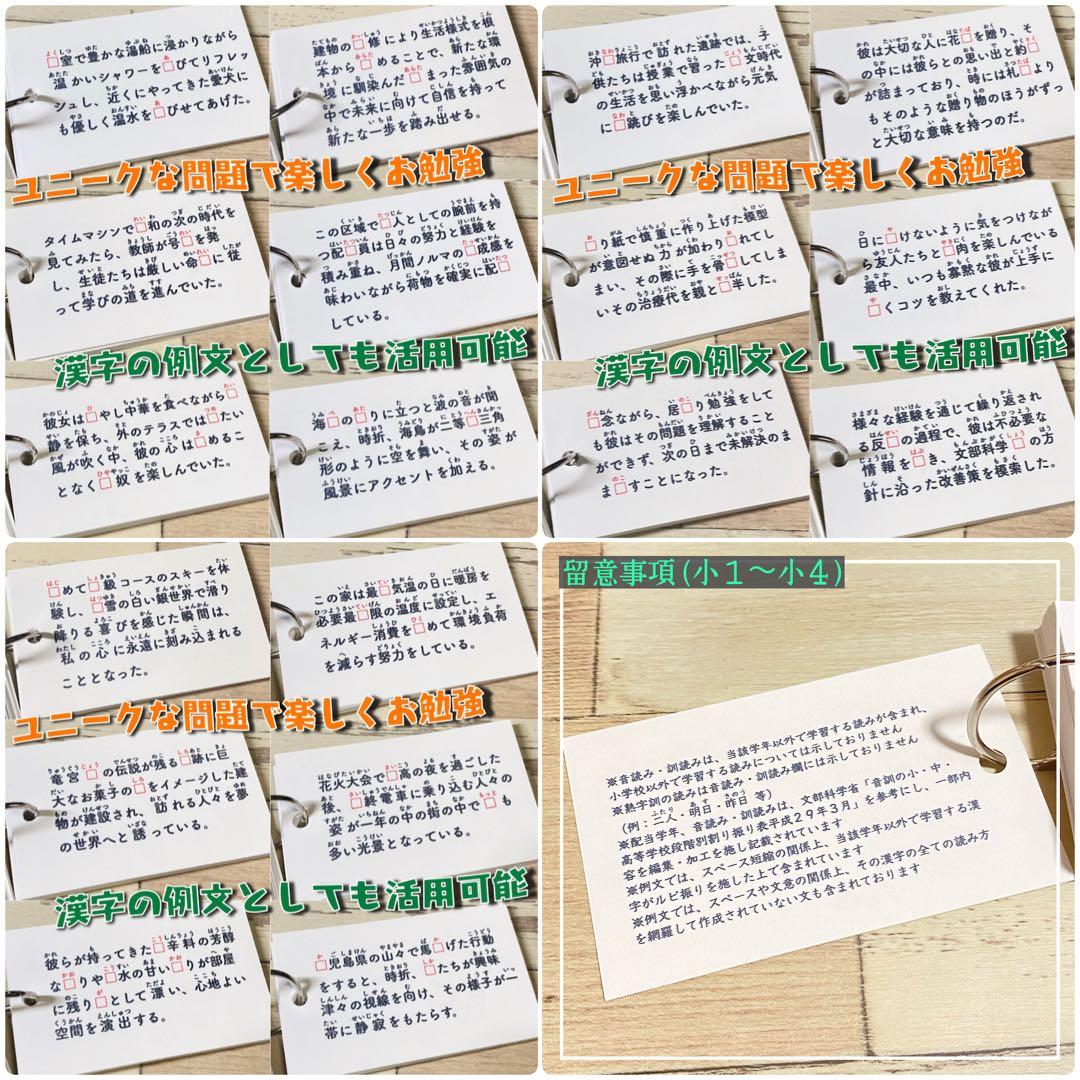 □室で豊かな湯船に浸かりながら
温かいシャワーを□びてリフレッ
シュし、近くにやってきた愛犬に
も優しく温水を□びせてあげた。
建物の□修により生活様式を根
本から□めることで、新たな環
境に馴染んだ□まった雰囲気の
中で未来に向けて自信を持って
新たな一歩を踏み出せる。
ユニークな問題で楽しくお勉強
タイムマシンで□和の次の時代を
見てみたら、教師が号□を発
し、生徒たちは厳しい命□に従
って学びの道を進んでいた。
この区域で□人としての腕前を持
つ配□員は日々の努力と経験を
積み重ね、月間ノルマの□成感を
味わいながら荷物を確実に配□
している。
漢字の例文としても活用可能
彼女は□やし中華を食べながら□
静を保ち、外のテラスでは□たい
風が吹く中、彼の心は□めるこ
となく□奴を楽しんでいた。
海□の□たりに立つと波の音が聞
こえ、時折、海鳥が二等□三角
形のように空を舞い、その姿が
風景にアクセントを加える。
沖□旅行で訪れた遺跡では、子
供たちは授業で習った□文時代
の生活を思い浮かべながら元気
に□跳びを楽しんでいた。
彼は大切な人に花□を贈り、そ
の中には彼らとの思い出と約□
が詰まっており、時には札□より
もそのような贈り物のほうがずっ
と大切な意味を持つのだ。
ユニークな問題で楽しくお勉強
□り紙で慎重に作り上げた模型
が意図せぬ力が加わり□れてし
まい、その際に手を骨□してしま
いその治療代を親と□半した。
日に□けないように気をつけなが
ら友人たちと□肉を楽しんでいる
最中、いつも寡黙な彼が上手に
□くコツを教えてくれた。
漢字の例文としても活用可能
□念ながら、居□り勉強をして
も彼はその問題を理解すること
ができず、次の日まで未解決のま
ま□すことになった。
様々な経験を通じて繰り返され
る反□の過程で、彼は不必要な
情報を□き、文部科学□の方
針に沿った改善策を模索した。
□めて□級コースのスキーを体
験し、□雪の白い銀世界で滑り
降りる喜びを感じた瞬間は、
私の心に永遠に刻み込まれる
こととなった。
この家は最□気温の日に暖房を
必要最□限の温度に設定し、エ
ネルギー消費を□めて環境負荷
を減らす努力をしている。
ユニークな問題で楽しくお勉強
竜宮□の伝説が残る□跡に巨
大なお菓子の□をイメージした建
物が建設され、訪れる人々を夢
の世界へと誘っている。
花火大会で□高の夜を過ごした
後、□終電車に乗り込む人々の
姿が一年の中の街の中で□も
多い光景となっている。
漢字の例文としても活用可能
彼らが持ってきた□辛料の芳醇
な□りや□水の甘い□りが部屋
に残り□として漂い、心地よい
空間を演出する。
□児島県の山々で馬□げた行動
をすると、時折、□たちが興味
津々の視線を向け、その様子が一
帯に静寂をもたらす。
留意事項(小１～小４)
※音読み・訓読みは、当該学年以外で学習する読みが含まれ、
小学校以外で学習する読みについては示しておりません
※熟字訓の読みは音読み・訓読み欄には示しておりません
（例：二人・明日・昨日 等）
※配当学年、音読み・訓読みは、文部科学省「音訓の小・中・
高等学校段階別割り振り表平成２９年３月」を参考にし、一部内
容を編集・加工を施し記載されています
※例文では、スペース短縮の関係上、当該学年以外で学習する漢
字がルビ振りを施した上で含まれています
※例文では、スペースや文意の関係上、その漢字の全ての読み方
を網羅して作成されていない文も含まれております